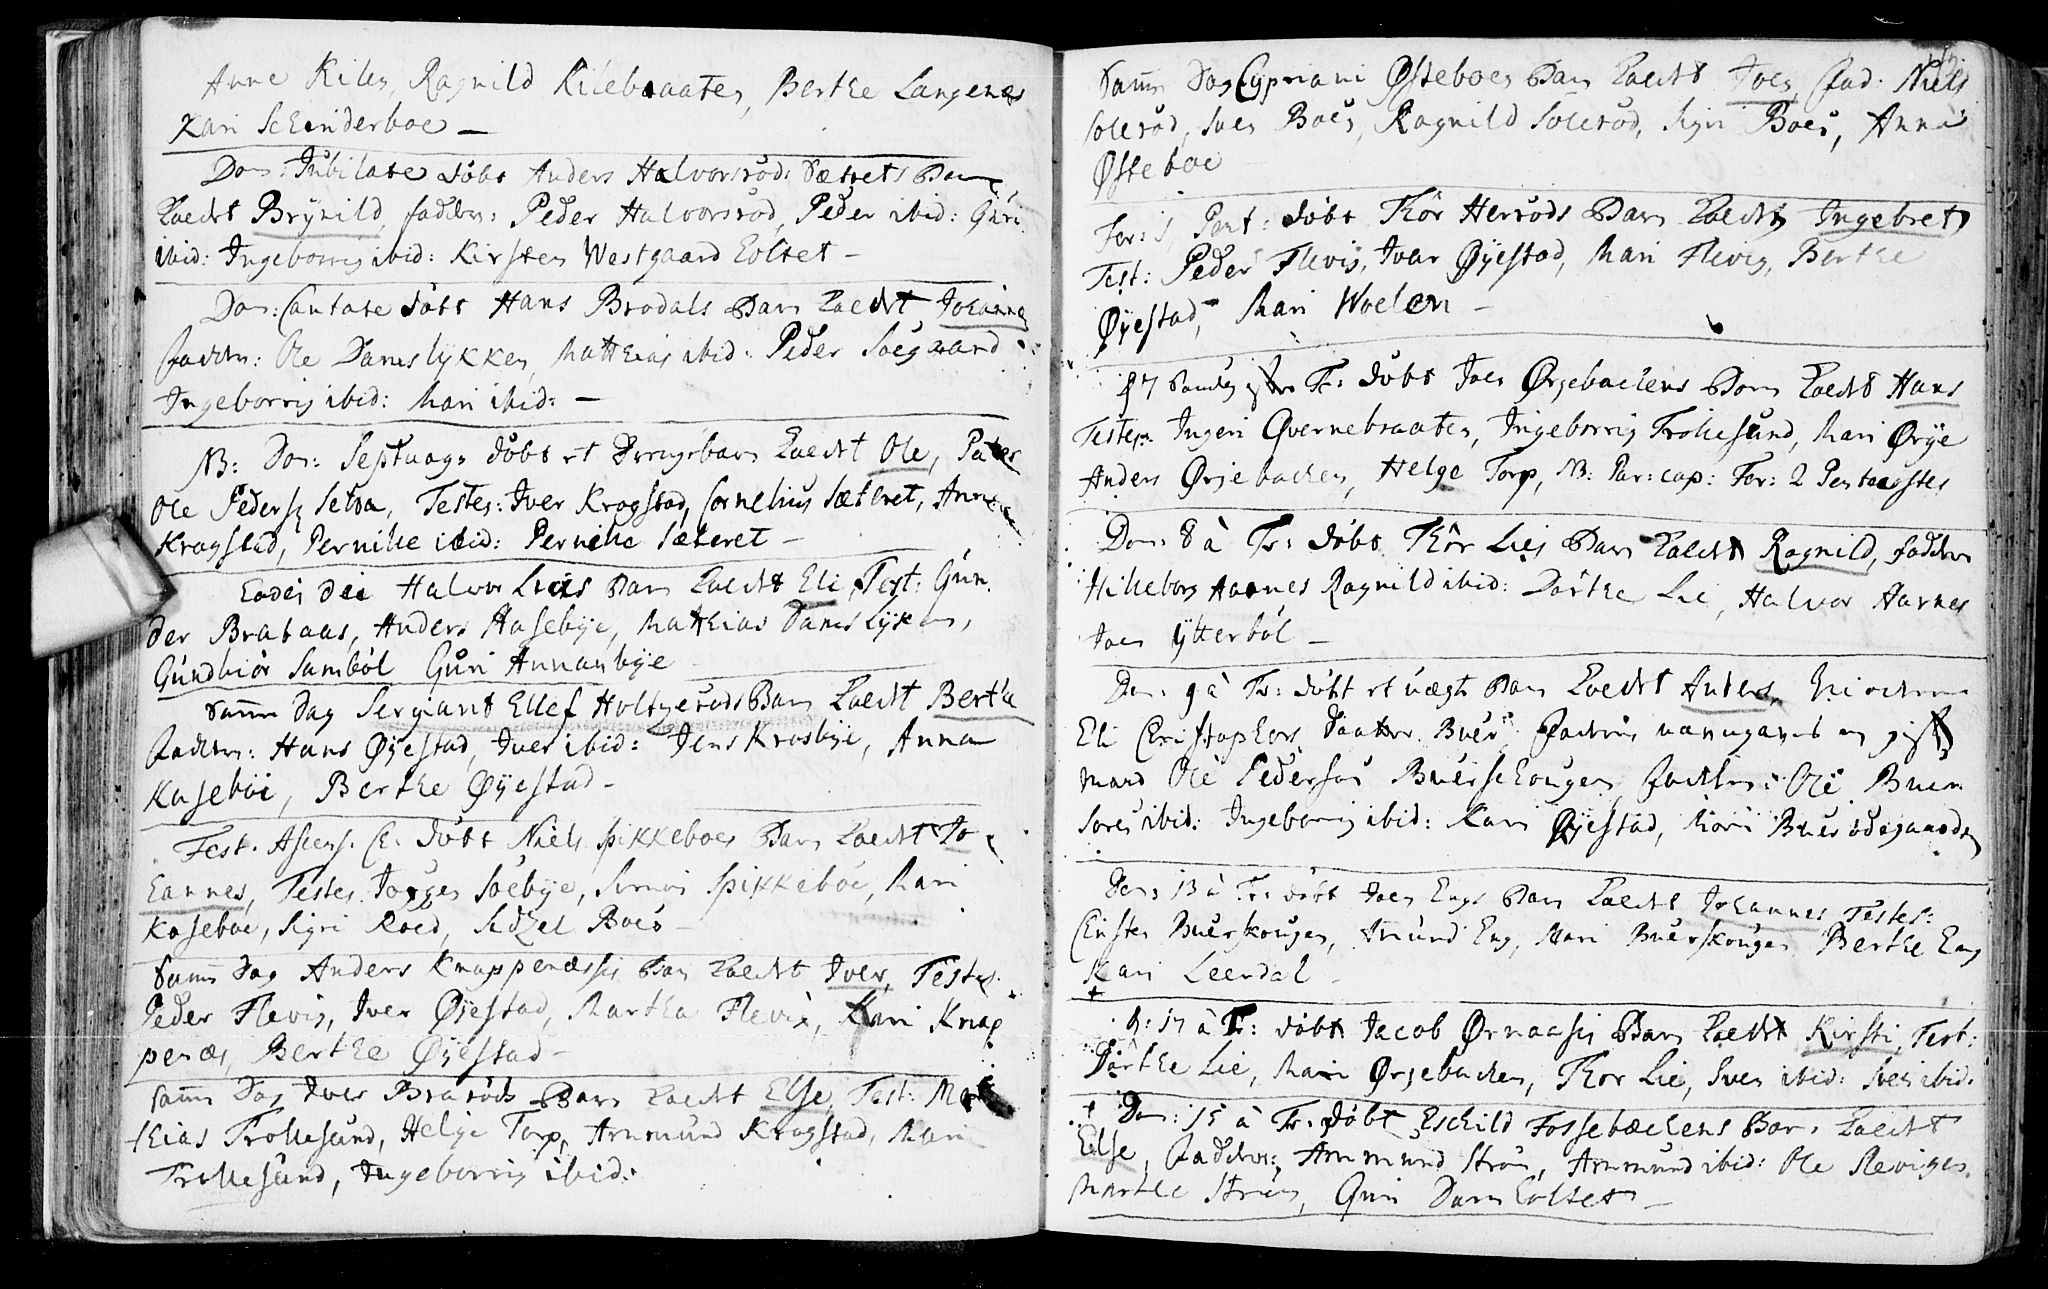 Anne Kilen, Ragnild Kilebraaten, Berthe Langenes
Kari Schinderboe —
Dom: Jubilate döbt Anders Halvorsröd: Sætrets Barn
kaldet Brynild, faddere: Peder Halvorsröd, Peder ibid: Guri
ibid: Ingeborrig ibid: Kirsten Westgaard Holtet —
Dom: Cantate döbt Hans Brodals Barn kaldet Johanne
fadder: Ole Damslykken, Matthias ibid: Peder Soegaard
Ingeborrig ibid: Mari ibid: —
NB: Dom: Septuag: döbt et Barn kaldet Ole, Pater
Ole Peders: Setra, Testes: Iver Kragstad, Cornelius Sæteret, Anne
Kragstad, Pernille ibid: Pernille Sæteret —
Eodem die Halvor Lies Barn kaldet Eli, Test: Gun-
der Brataas, Anders Hasebye, Mathias Damslyken,
Gundhiör Samböl Guri Annanbye
Samme Dag Sergiant Ellef Holtgeröds Barn kaldet Bertha
Fadder: Hans Øyestad, Iver ibid: Jens Krosbye, Anna
Kaseböe, Berthe Øyestad —
Fest. Ascens. C. döbt Niels Spikkeboes Barn kaldet Jo-
hannes, Testes Jörgen Söebye, Simon Spikkeböe, Mari
Kaseböe, Sigri Roed, Sidzel Boes —
Samme Dag Anders Knappenæssis Barn kaldet Iver, Testes.
Peder Flevig, Iver Øyestad, Martha Flevig, Kari Knap
penæs, Berthe Øyestad —
Samme Dag Iver Braröds Barn kaldet Else, Test: Mat
thias Trollesund, Helge Torp, Arnmund Kragstad, Mari
Trollesund, Ingeborrig ibid:
Samme Dag Cypriani Østeboes Barn kaldet Joen, fad: Niels
Soleröd, Sven Boes, Ragnild Soleröd, Sigri Boes, Anna
Østeboe
Fer: 1 Pent: döbt Thor Herröds Barn kaldet Ingebret
Test: Peder Flevig, Ivar Øyestad, Mari Flevig, Berthe
Øyestad, Mari Woelen —
7 Tr: döbt Joen Ørjebachens Barn kaldet Hans
Testes: Ingeri Qvernebraaten, Ingeborrig Trollesund, Mari Ørje
Anders Ørjebachen, Helge Torp, NB: Par: cap: Fer: 2 Pentecostes
Dom: 8 à Tr: döbt Thor Lies Barn kaldet Ragnild, fadder
Hilleborg Aarnes Ragnild ibid: Dorthe Lie, Halvor Aarnes
Joen Ytterböl —
Dom: 9 à Tr: döbt et uægte Barn kaldet Anders,
Eli Christophers Daatter Buer, Barnefader en gift
Mand Ole Pedersøn Buerskougen fadder: Ole Buer
Sören ibid: Ingeborrig ibid: Kari Øyestad, Mari Buer ödegaarden
Dom: 13 à Tr: döbt Joen Engs Barn kaldet Johannes Testes:
Christen Buerskougen, Amund Eng, Mari Buerskougen Berthe Eng
Kari Leerdal —
D: 17 à Tr: döbt Jacob Ørnaasis Barn kaldet Kirsti, Test:
Dorthe Lie, Mari Ørjebachen, Thor Lie, Sven ibid: Sven ibid.
Dom: 15 à Tr: döbt Eschild Fossebachens Barn kaldet
Else, Fadder: Arnmund Ström, Arnmund ibid: Ole Revigen
Marthe Ström, Guri Damholtet —